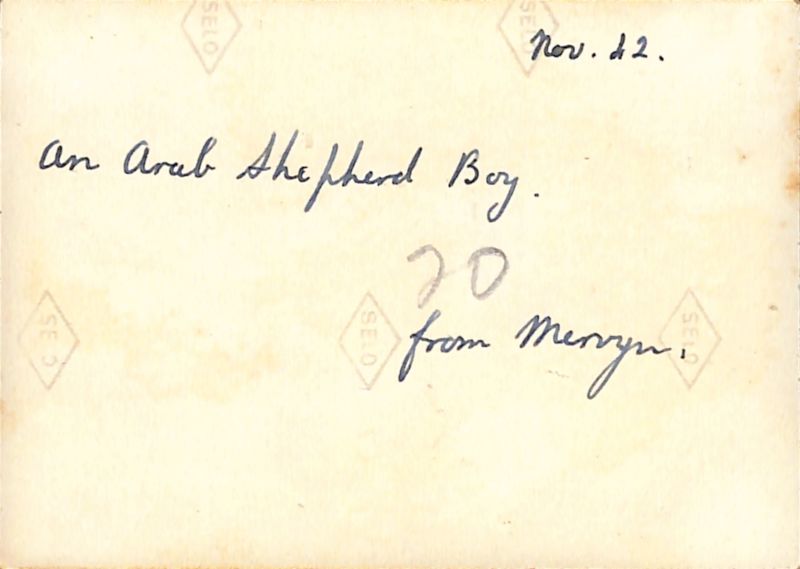 SELO SELO
Nov. 42.
An Arab Shepherd Boy.
20
from Mervyn.
SE O SELO SELO